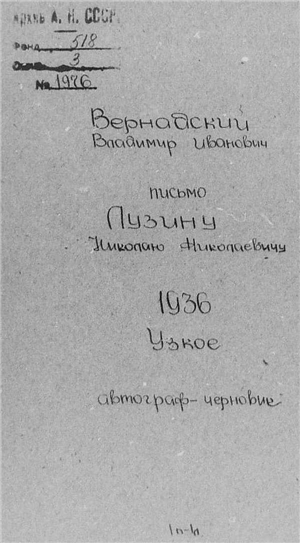 Архив А. Н. СССР.
Фонд 518
Опись 3
№ 1976
Вернадский
Владимир Иванович
письмо
Лузину
Николаю Николаевичу
1936
Узкое
автограф-черновик